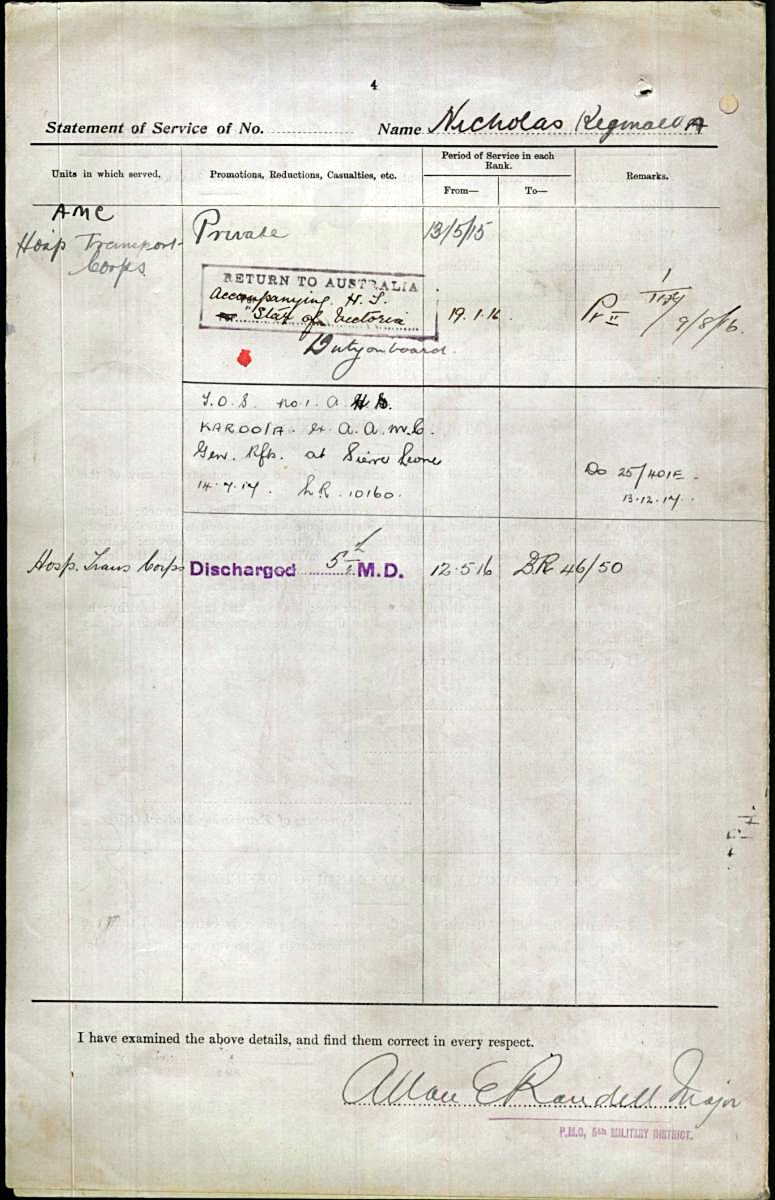 4
Statement of Service of No. Name Nicholas Reginald A
Units in which served. Promotions, Reductions, Casualties, etc. Period of Service in each Rank. From— To— Remarks.
AMC
Hosp Transport Corps Private 13/5/15
RETURN TO AUSTRALIA
Accompanying H.S.
"Star of Victoria 19.1.16 Pt II 9/8/16.
Duty on board.
T.O.S. no.1. A H.S.
KAROOLA. A.A.M.C.
Gen. Rfts. at Sierra Leone
14.7.17. L.R. 10160. Do 25/401E.
13.12.17.
Hosp. Trans Corps Discharged 5 M.D. 12.5.16 D.R. 46/50
I have examined the above details, and find them correct in every respect.
Allan E Randell Major
P.M.O, 5th MILITARY DISTRICT.